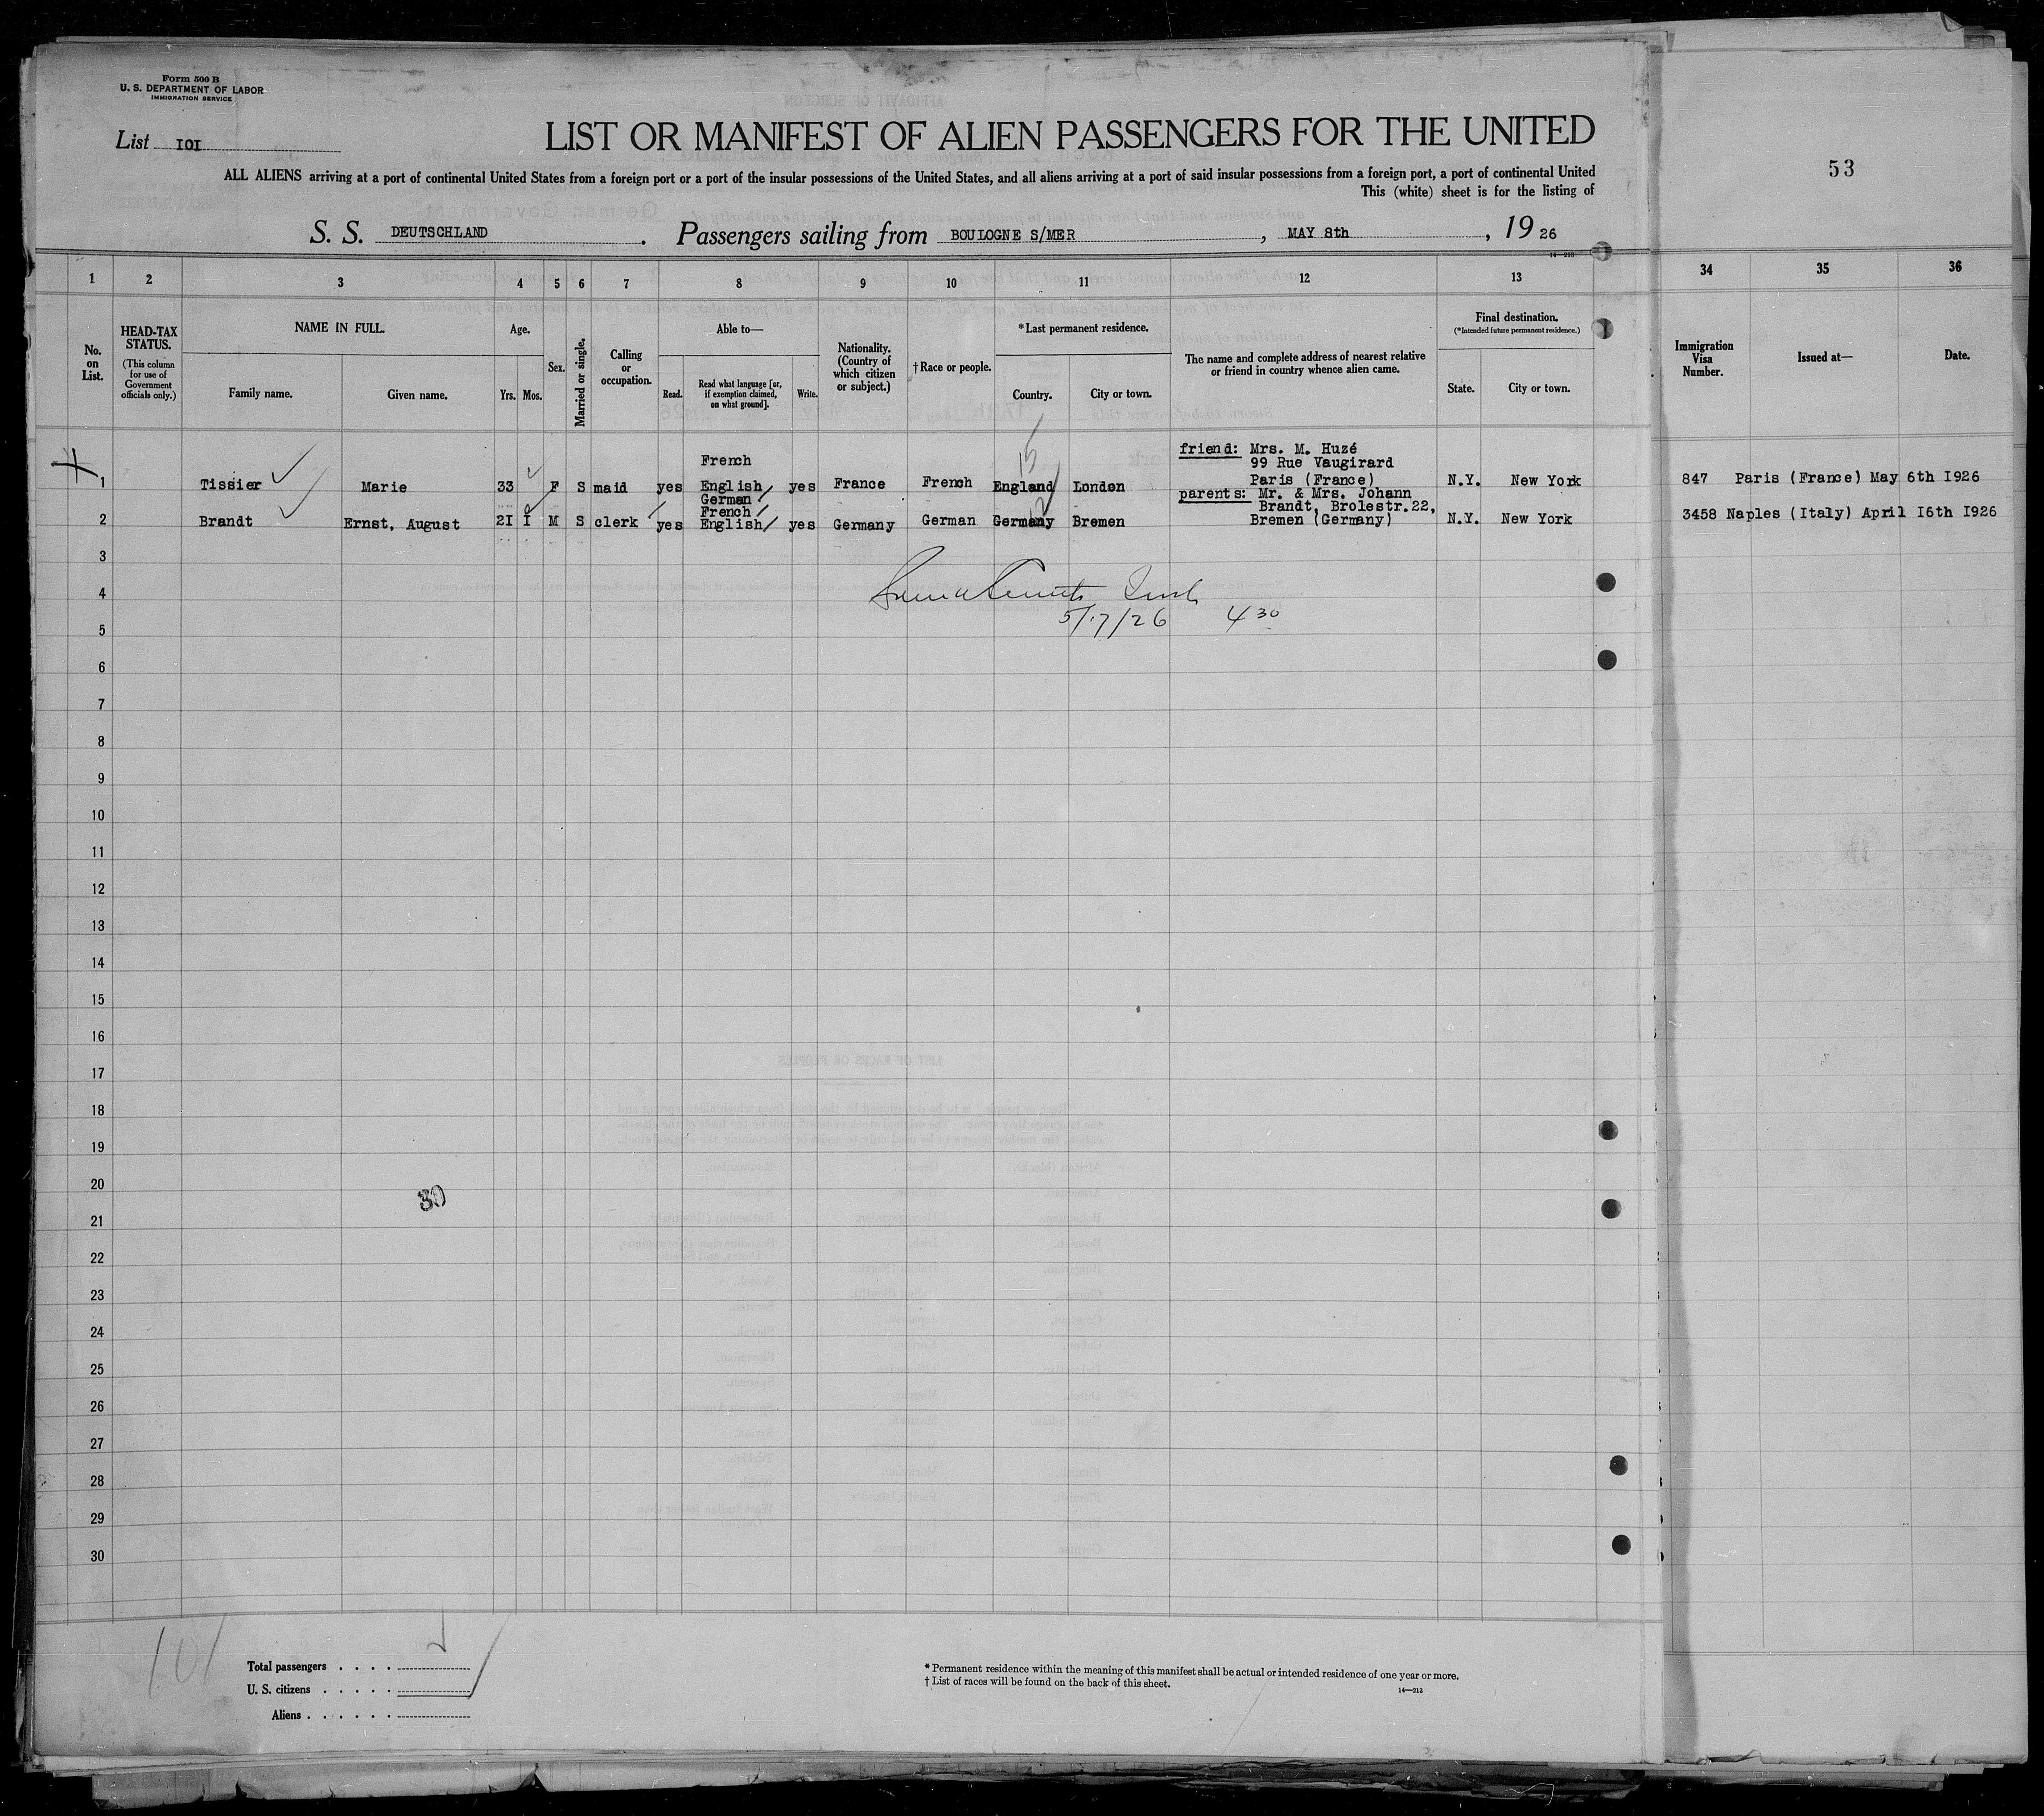 Form 500 B
U. S. DEPARTMENT OF LABOR
IMMIGRATION SERVICE
List IOI
LIST OR MANIFEST OF ALIEN PASSENGERS FOR THE UNITED
53
ALL ALIENS arriving at a port of continental United States from a foreign port or a port of the insular possessions of the United States, and all aliens arriving at a port of said insular possessions from a foreign port, a port of continental United
This (white) sheet is for the listing of
S. S. DEUTSCHLAND . Passengers sailing from BOULOGNE S/MER , MAY 8th , 19 26
14—213
1 2 3 4 5 6 7 8 9 10 11 12 13 34 35 36
No. on List.
HEAD-TAX STATUS.
(This column for use of Government officials only.)
NAME IN FULL.
Family name. Given name.
Age.
Yrs. Mos.
Sex.
Married or single.
Calling or occupation.
Able to—
Read. Read what language [or, if exemption claimed, on what ground]. Write.
Nationality. (Country of which citizen or subject.)
†Race or people.
*Last permanent residence.
Country. City or town.
The name and complete address of nearest relative or friend in country whence alien came.
Final destination.
(*Intended future permanent residence.)
State. City or town.
Immigration Visa Number.
Issued at—
Date.
friend: Mrs. M. Huzé
French 99 Rue Vaugirard
1 Tissier Marie 33 F S maid yes English yes France French England London Paris (France) N.Y. New York 847 Paris (France) May 6th I926
German parents: Mr. & Mrs. Johann
French Brandt, Brolestr.22,
2 Brandt Ernst, August 2I I M S clerk yes English yes Germany German Germany Bremen Bremen (Germany) N.Y. New York 3458 Naples (Italy) April I6th I926
15
3
4
5/17/26 4 30
5
6
7
8
9
10
11
12
13
14
15
16
17
18
19
20
30
21
22
23
24
25
26
27
28
29
30
101
Total passengers . . . .
U. S. citizens . . . . .
Aliens . . . . . .
* Permanent residence within the meaning of this manifest shall be actual or intended residence of one year or more.
† List of races will be found on the back of this sheet.
14—213